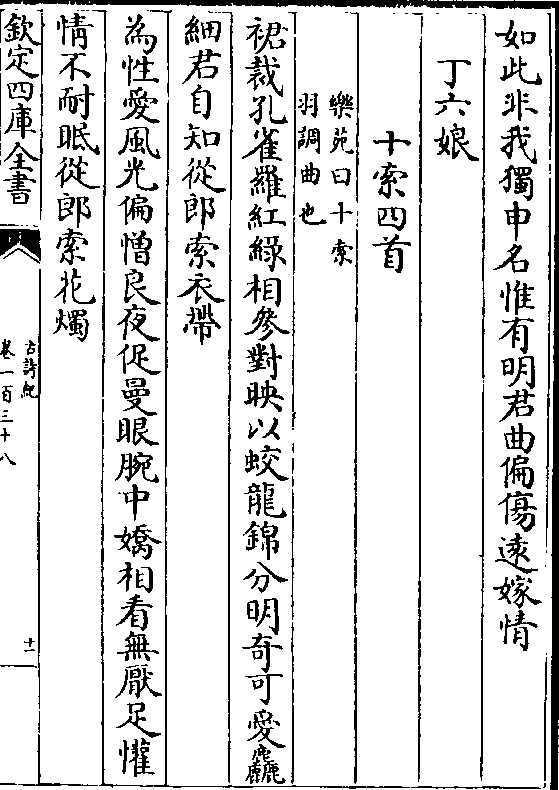 如此非我獨申名惟有明君曲偏傷遠嫁情
丁六娘
十索四首
樂苑曰十索
羽調曲也
裙裁孔雀羅紅綠相參對映以蛟龍錦分明奇可愛麤
細君自知從郎索衣帶
為性愛風光偏憎良夜促曼眼腕中嬌相看無厭足懽
情不耐眠從郎索花燭
欽定四庫全書
古詩紀
卷一百三十八
十一